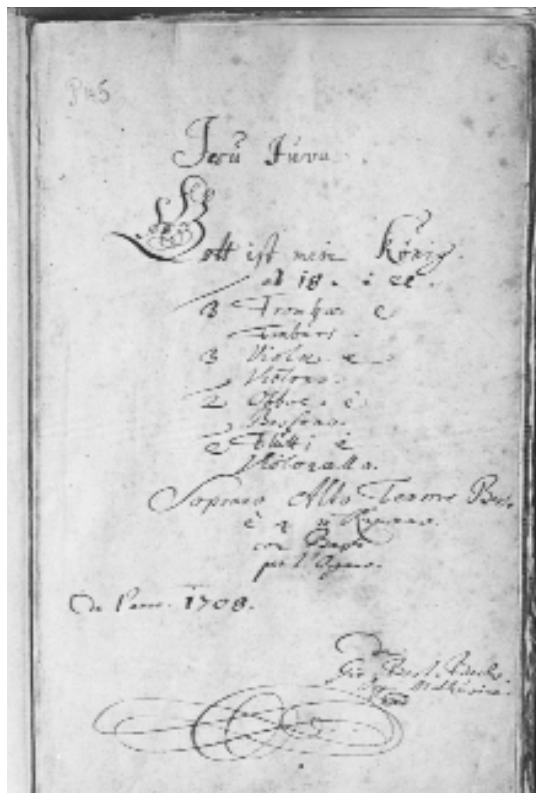 P 45
Jesu Juva.
Gott ist mein König.
ab 18. è 22.
3 Trombæ è
Tamburi.
3 Violæ è
Violono.
2 Obboe. è
Bassono.
2 Flutti è
Violoncello.
Soprano Alto Tenore Basso
è 4 Ripieno.
con
per l'Organo.
De l'anno. 1708.
da
Gio. Bast. Bach.
Org. Molhusino.